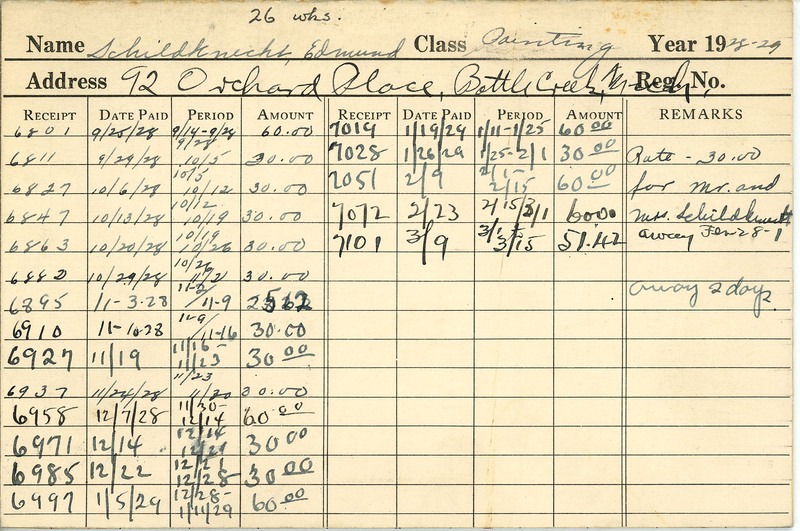 26 wks.
Name Schildknecht, Edmund Class Painting Year 1928-29
Address 92 Orchard Place, Battle Creek, Mich. Reg. No.
RECEIPT DATE PAID PERIOD AMOUNT RECEIPT DATE PAID PERIOD AMOUNT REMARKS
6801 9/25/28 9/14-9/28 60.00 7019 1/19/29 1/11-1/25 60.00
6811 9/29/28 9/28 10/5 30.00 7028 1/26/29 1/25-2/1 30.00 Rate - 30.00
6827 10/6/28 10/5 10/12 30.00 7051 2/9 2/1- 2/15 60.00 for Mr. and
6847 10/13/28 10/12 10/19 30.00 7072 2/23 2/15 3/1 6000 Mrs. Schildknecht
6863 10/20/28 10/19 10/26 30.00 7101 3/9 3/1 to 3/15 51.42 away Jan 28-1
6882 10/29/28 10/26 11/2 30.00
6895 11-3-28 11-2/11-9 away 2 days
6910 11-10-28 11-9/11-16 30.00
6927 11/19 11/16- 11/23 30.00
6937 11/24/28 11/23 11/30 30.00
6958 12/7/28 11/30- 12/14 60.00
6971 12/14 12/14 12/21 30.00
6985 12/22 12/21 12/28 30.00
6997 1/5/29 12/28- 1/11/29 60.00